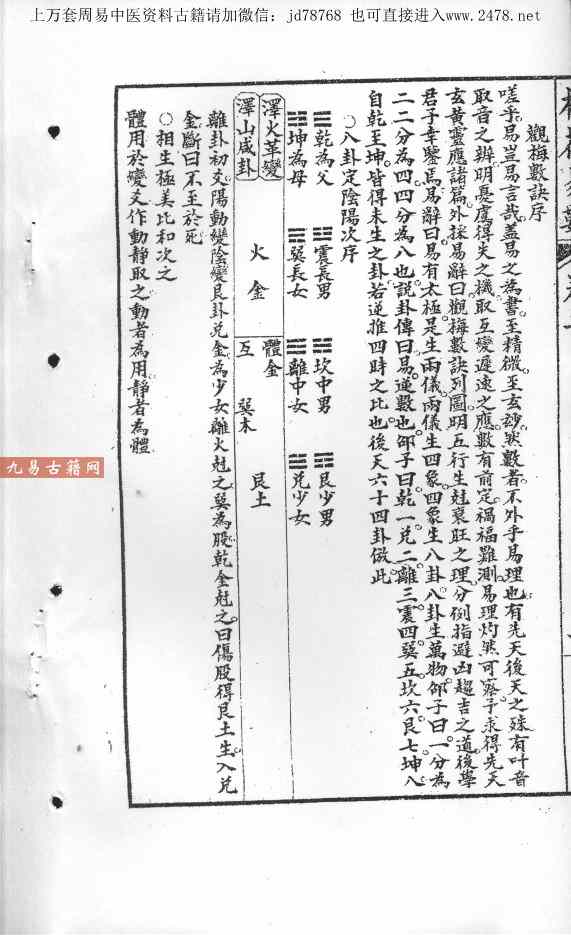 上万套周易中医资料古籍请加微信：jd78768 也可直接进入www.2478.net
觀梅數訣序
嗟乎易豈易言哉蓋易之為書至精微至玄妙然數者不外乎易理也有先天後天之殊有叶音
取音之辨明憂虞得失之機取互變遲速之應數有前定禍福難測易理灼然可察予求得先天
玄黃靈應諸篇外採易辭曰觀梅數訣列圖明五行生尅衰旺之理分例指避凶趨吉之道後學
君子幸鑒焉易辭曰易有太極是生兩儀兩儀生四象四象生八卦八卦生萬物邵子曰一分為
二二分為四四分為八也說卦傳曰易逆數也邵子曰乾一兌二離三震四巽五坎六艮七坤八
自乾至坤皆得未生之卦若逆推四時之比也後天六十四卦倣此
○八卦定陰陽次序
☰乾為父 ☳震長男 ☵坎中男 ☶艮少男
☷坤為母 ☴巽長女 ☲離中女 ☱兌少女
澤火革變 火 金 體金 艮土
澤山咸卦 互 巽木
離卦初爻陽動變陰變艮卦兌金為少女離火尅之巽為股乾金尅之曰傷股得艮土生入兌
金斷曰不至於死
○相生極美比和次之
體用於變爻作動靜取之動者為用靜者為體
九易古籍网